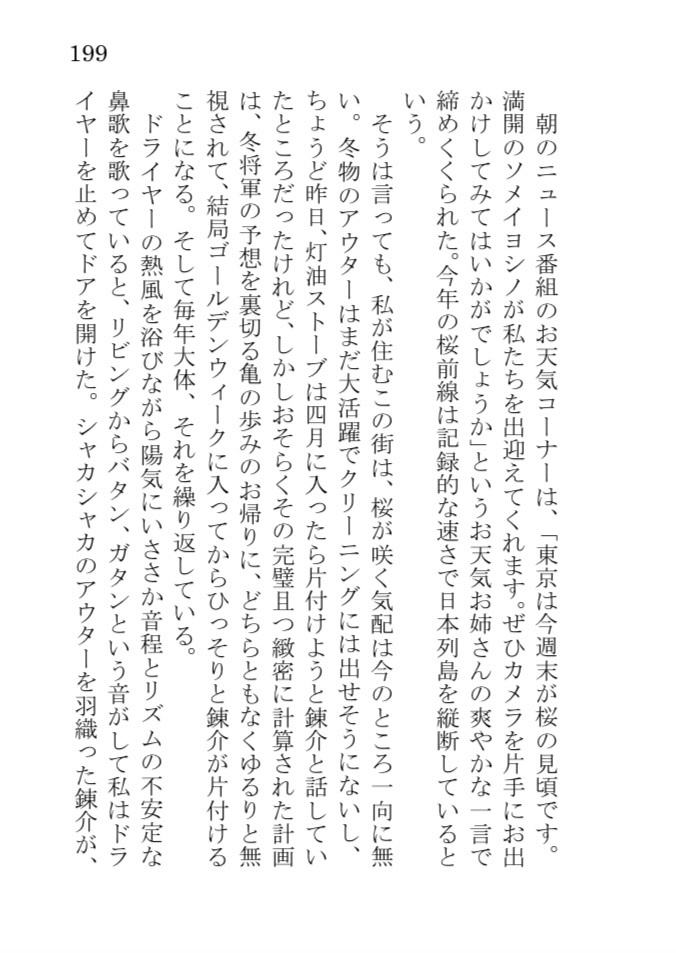 199
　朝のニュース番組のお天気コーナーは、「東京は今週末が桜の見頃です。
満開のソメイヨシノが私たちを出迎えてくれます。ぜひカメラを片手にお出
かけしてみてはいかがでしょうか」というお天気お姉さんの爽やかな一言で
締めくくられた。今年の桜前線は記録的な速さで日本列島を縦断していると
いう。
　そうは言っても、私が住むこの街は、桜が咲く気配は今のところ一向に無
い。冬物のアウターはまだ大活躍でクリーニングには出せそうにないし、
ちょうど昨日、灯油ストーブは四月に入ったら片付けようと錬介と話してい
たところだったけれど、しかしおそらくその完璧且つ緻密に計算された計画
は、冬将軍の予想を裏切る亀の歩みのお帰りに、どちらともなくゆるりと無
視されて、結局ゴールデンウィークに入ってからひっそりと錬介が片付ける
ことになる。そして毎年大体、それを繰り返している。
　ドライヤーの熱風を浴びながら陽気にいささか音程とリズムの不安定な
鼻歌を歌っていると、リビングからバタン、ガタンという音がして私はドラ
イヤーを止めてドアを開けた。シャカシャカのアウターを羽織った錬介が、